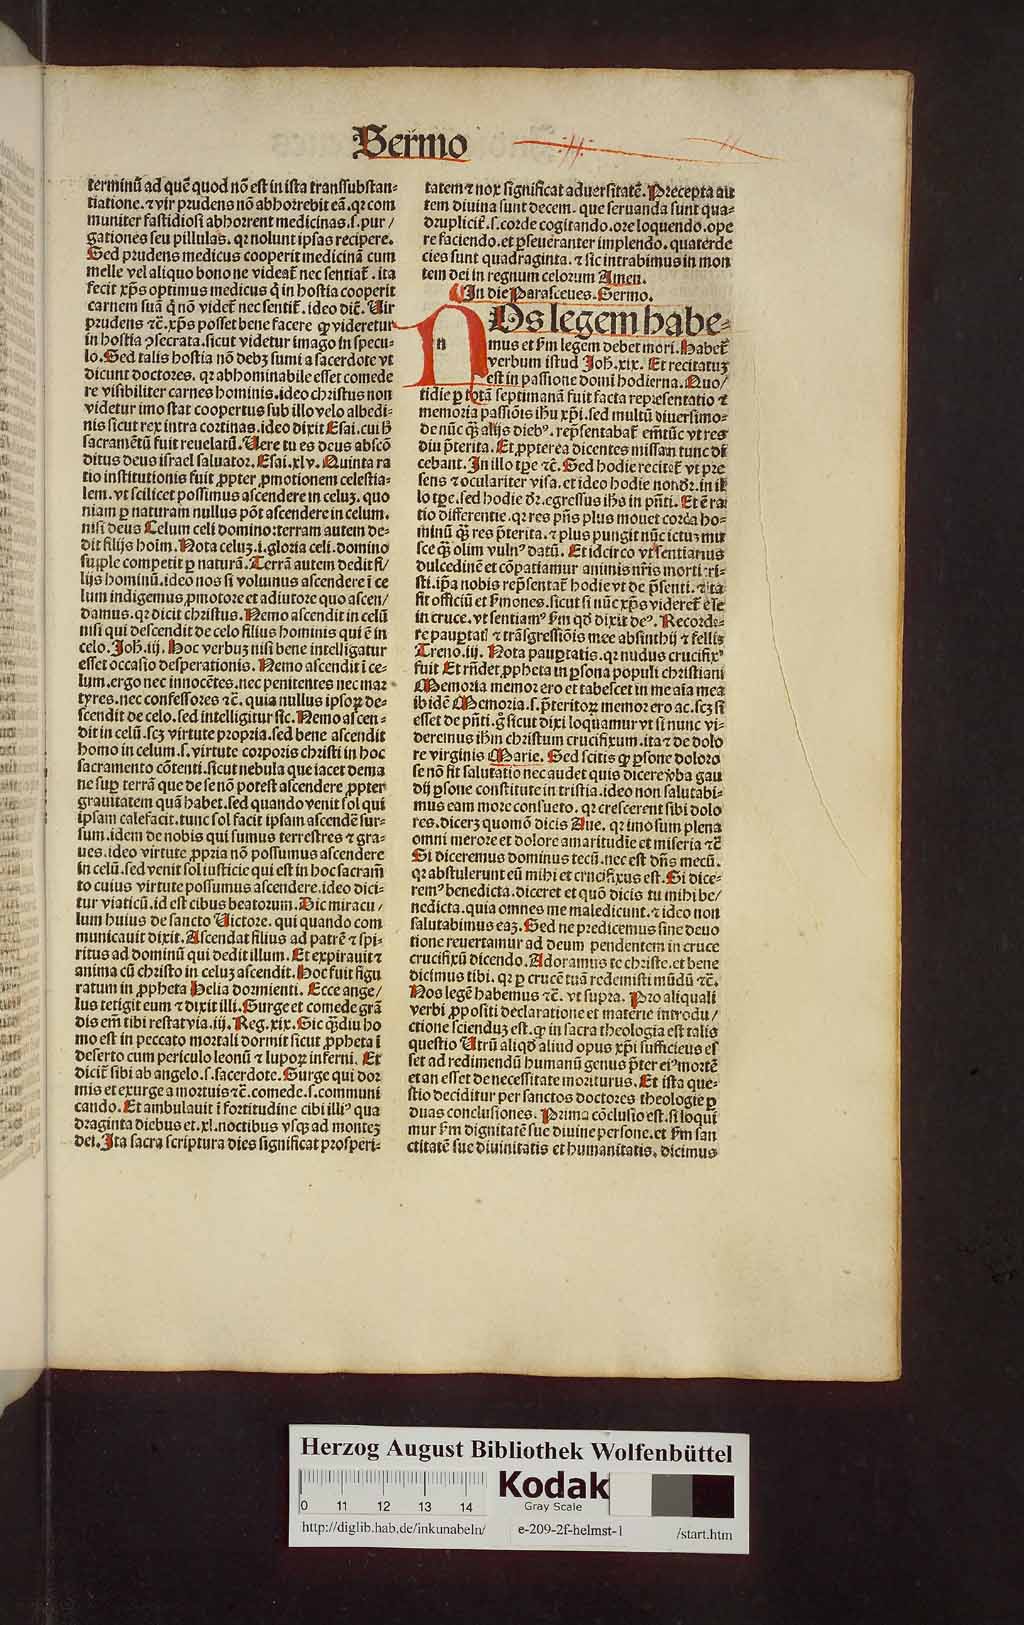 Sermo
terminū ad quē quod nō est in ista transsubstan-
tiatione. ⁊ vir prudens nō abhorrebit eā. qꝛ com
muniter fastidiosi abhorrent medicinas .s. pur/
gationes seu pillulas. qꝛ nolunt ipsas recipere.
Sed prudens medicus cooperit medicinā cum
melle vel aliquo bono ne videat᷑ nec sentiat᷑. ita
fecit xp̄s optimus medicus q̄ in hostia cooperit
carnem suā q̄ nō videt᷑ nec sentit᷑. ideo dic̄. Uir
prudens ⁊c̄. xp̄s posset bene facere ꝙ videretur
in hostia ꝯsecrata. sicut videtur imago in specu-
lo. Sed talis hostia nō debꝫ sumi a sacerdote vt
dicunt doctores. qꝛ abhominabile esset comede
re visibiliter carnes hominis. ideo christus non
videtur imo stat coopertus sub illo velo albedi-
nis sicut rex intra cortinas. ideo dixit Esai. cui h̄
sacramētū fuit reuelatū. Uere tu es deus abscō
ditus deus israel saluator. Esai. xlv. Quinta ra
tio institutionis fuit ꝓpter ꝓmotionem celestia-
lem. vt scilicet possimus ascendere in celuꝫ. quo
niam ꝑ naturam nullus pōt ascendere in celum.
nisi deus Celum celi domino: terram autem de-
dit filijs hoīm. Nota celuꝫ .i. gloria celi. domino
suple competit ꝑ naturā. Terrā autem dedit fi/
lijs hominū. ideo nos si volumus ascendere ī ce
lum indigemus ꝓmotore et adiutore quo ascen/
damus. qꝛ dicit christus. Nemo ascendit in celū
nisi qui descendit de celo filius hominis qui ē in
celo. Joh̄. iij. Hoc verbuꝫ nisi bene intelligatur
esset occasio desperationis. Nemo ascendit ī ce-
lum. ergo nec innocētes. nec penitentes nec mar
tyres. nec confessores ⁊c̄. quia nullus ipsoꝝ de-
scendit de celo. sed intelligitur sic. Nemo ascen-
dit in celū. scꝫ virtute propria. sed bene ascendit
homo in celum .s. virtute corporis christi in hoc
sacramento cōtenti. sicut nebula que iacet dema
ne suꝑ terrā que de se nō potest ascendere ꝓpter
grauitatem quā habet. sed quando venit sol qui
ipsam calefacit. tunc sol facit ipsam ascendē sur-
sum. idem de nobis qui sumus terrestres ⁊ gra-
ues. ideo virtute ꝓpria nō possumus ascendere
in celū. sed venit sol iusticie qui est in hoc sacram̄
to cuius virtute possumus ascendere. ideo dici-
tur viaticū. id est cibus beatorum. Dic miracu/
lum huius de sancto Uictore. qui quando com
municauit dixit. Ascendat filius ad patrē ⁊ spi-
ritus ad dominū qui dedit illum. Et expirauit ⁊
anima cū christo in celuꝫ ascendit. Hoc fuit figu
ratum in ꝓpheta Helia dormienti. Ecce ange/
lus tetigit eum ⁊ dixit illi. Surge et comede grā
dis em̄ tibi restat via. iij. Reg. xix. Sic qn̄diu ho
mo est in peccato mortali dormit sicut ꝓpheta ī
deserto cum periculo leonū ⁊ lupoꝝ inferni. Et
dicit᷑ sibi ab angelo .s. sacerdote. Surge qui dor
mis et exurge a mortuis ⁊c̄. comede .s. communi
cando. Et ambulauit ī fortitudine cibi illiꝰ qua
draginta diebus et .xl. noctibus vsqꝫ ad monteꝫ
dei. Ita sacra scriptura dies significat prosperi-
tatem ⁊ nox significat aduersitatē. Precepta au
tem diuina sunt decem. que seruanda sunt qua-
drupliciter .s. corde cogitando. ore loquendo. ope
re faciendo. et ꝑseueranter implendo. quaterde
cies sunt quadraginta. ⁊ sic intrabimus in mon
tem dei in regnum celorum Amen.
In die Parasceues. Sermo.
NOs legem habe-
mus et s̄m legem debet mori. Habet᷑
verbum istud Joh̄. xix. Et recitatuꝫ
est in passione domī hodierna. Quo/
tidie ꝑ totā septimanā fuit facta rep̄sentatio ⁊
memoria passiōis ih̄u xp̄i. sed multū diuersimo-
de nūc qꝫ alijs diebꝰ. rep̄sentabat᷑ em̄ tūc vt res
diu p̄terita. Et ꝓpterea dicentes missam tunc di
cebant. In illo tp̄e ⁊c̄. Sed hodie recitet᷑ vt pre
sens ⁊ oculariter visa. et ideo hodie non dr̄. in il
lo tp̄e. sed hodie dr̄. egressus ih̄s in p̄nti. Et ē ra
tio differentie. qꝛ res p̄ns plus mouet corda ho-
minū qꝫ res p̄terita. ⁊ plus pungit nūc ictus mu
sce qꝫ olim vulnꝰ datū. Et idcirco vt sentiamus
dulcedinē et cōpatiamur animis nr̄is morti xri-
sti. ip̄a nobis rep̄sentat᷑ hodie vt de p̄senti. ⁊ ita
fit officiū et s̄mones. sicut si nūc xp̄s videret᷑ eē
in cruce. vt sentiamꝰ s̄m qd̄ dixit deꝰ. Recorda-
re pauꝑtatī ⁊ trāsgressiōis mee absinthij ⁊ fellis
Treno. iij. Nota pauꝑtatis. qꝛ nudus crucifixꝰ
fuit Et rn̄det ꝓpheta in ꝑsona populi christiani
Memoria memor ero et tabescet in me aīa mea
ibidē Memoria .s. p̄teritoꝝ memor ero ac .scꝫ si
esset de p̄nti. ḡ sicut dixi loquamur vt si nunc vi-
deremus ih̄m christum crucifixum. ita ⁊ de dolo
re virginis Marie. Sed scitis ꝙ ꝑsone doloro
se nō fit salutatio nec audet quis dicere v̄ba gau
dij ꝑsone constitute in tristia. ideo non salutabi-
mus eam more consueto. qꝛ crescerent sibi dolo
res. dicerꝫ quomō dicis Aue. qꝛ imo sum plena
omni merore et dolore amaritudie et miseria ⁊c̄
Si diceremus dominus tecū. nec est dn̄s mecū.
qꝛ abstulerunt eū mihi et crucifixus est. Si dice-
remꝰ benedicta. diceret et quō dicis tu mihi be/
nedicta. quia omnes me maledicunt. ⁊ ideo non
salutabimus eaꝫ. Sed ne predicemus sine deuo
tione reuertamur ad deum pendentem in cruce
crucifixū dicendo. Adoramus te christe. et bene
dicimus tibi. qꝛ ꝑ crucē tuā redemisti mūdū ⁊c̄.
Nos legē habemus ⁊c̄. vt supra. Pro aliquali
verbi ꝓpositi declaratione et materie introdu/
ctione scienduꝫ est. ꝙ in sacra theologia est talis
questio Utrū aliqd̄ aliud opus xp̄i sufficiens es
set ad redimendū humanū genus p̄ter eiꝰ mortē
et an esset de necessitate moriturus. Et ista que-
stio deciditur per sanctos doctores theologie ꝑ
duas conclusiones. Prima cōclusio est. si loqui
mur s̄m dignitatē sue diuine persone. et s̄m san
ctitatē sue diuinitatis et humanitatis. dicimus
Herzog August Bibliothek Wolfenbüttel
0 11 12 13 14
Kodak
Gray Scale
http://diglib.hab.de/inkunabeln/ e-209-2f-helmst-1 /start.htm